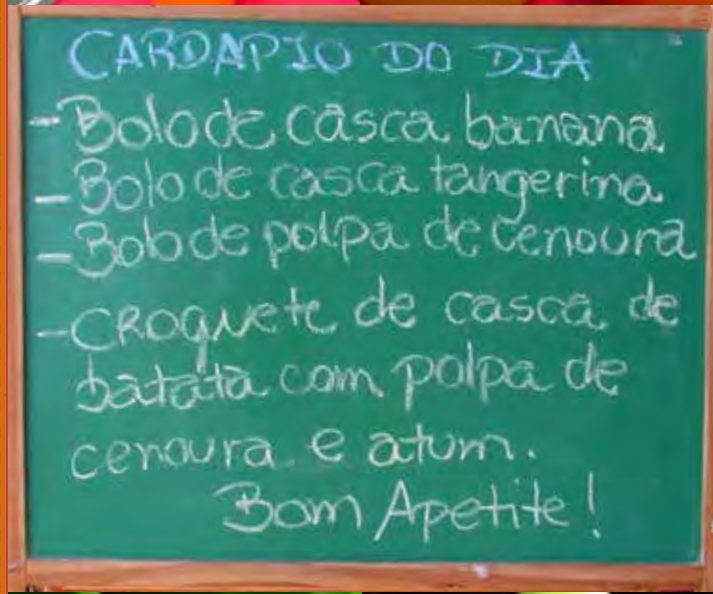 CARDAPIO DO DIA
- Bolo de casca banana
- Bolo de casca tangerina
- Bolo de polpa de cenoura
- CROQuete de casca de
batata com polpa de
cenoura e atum.
Bom Apetite!